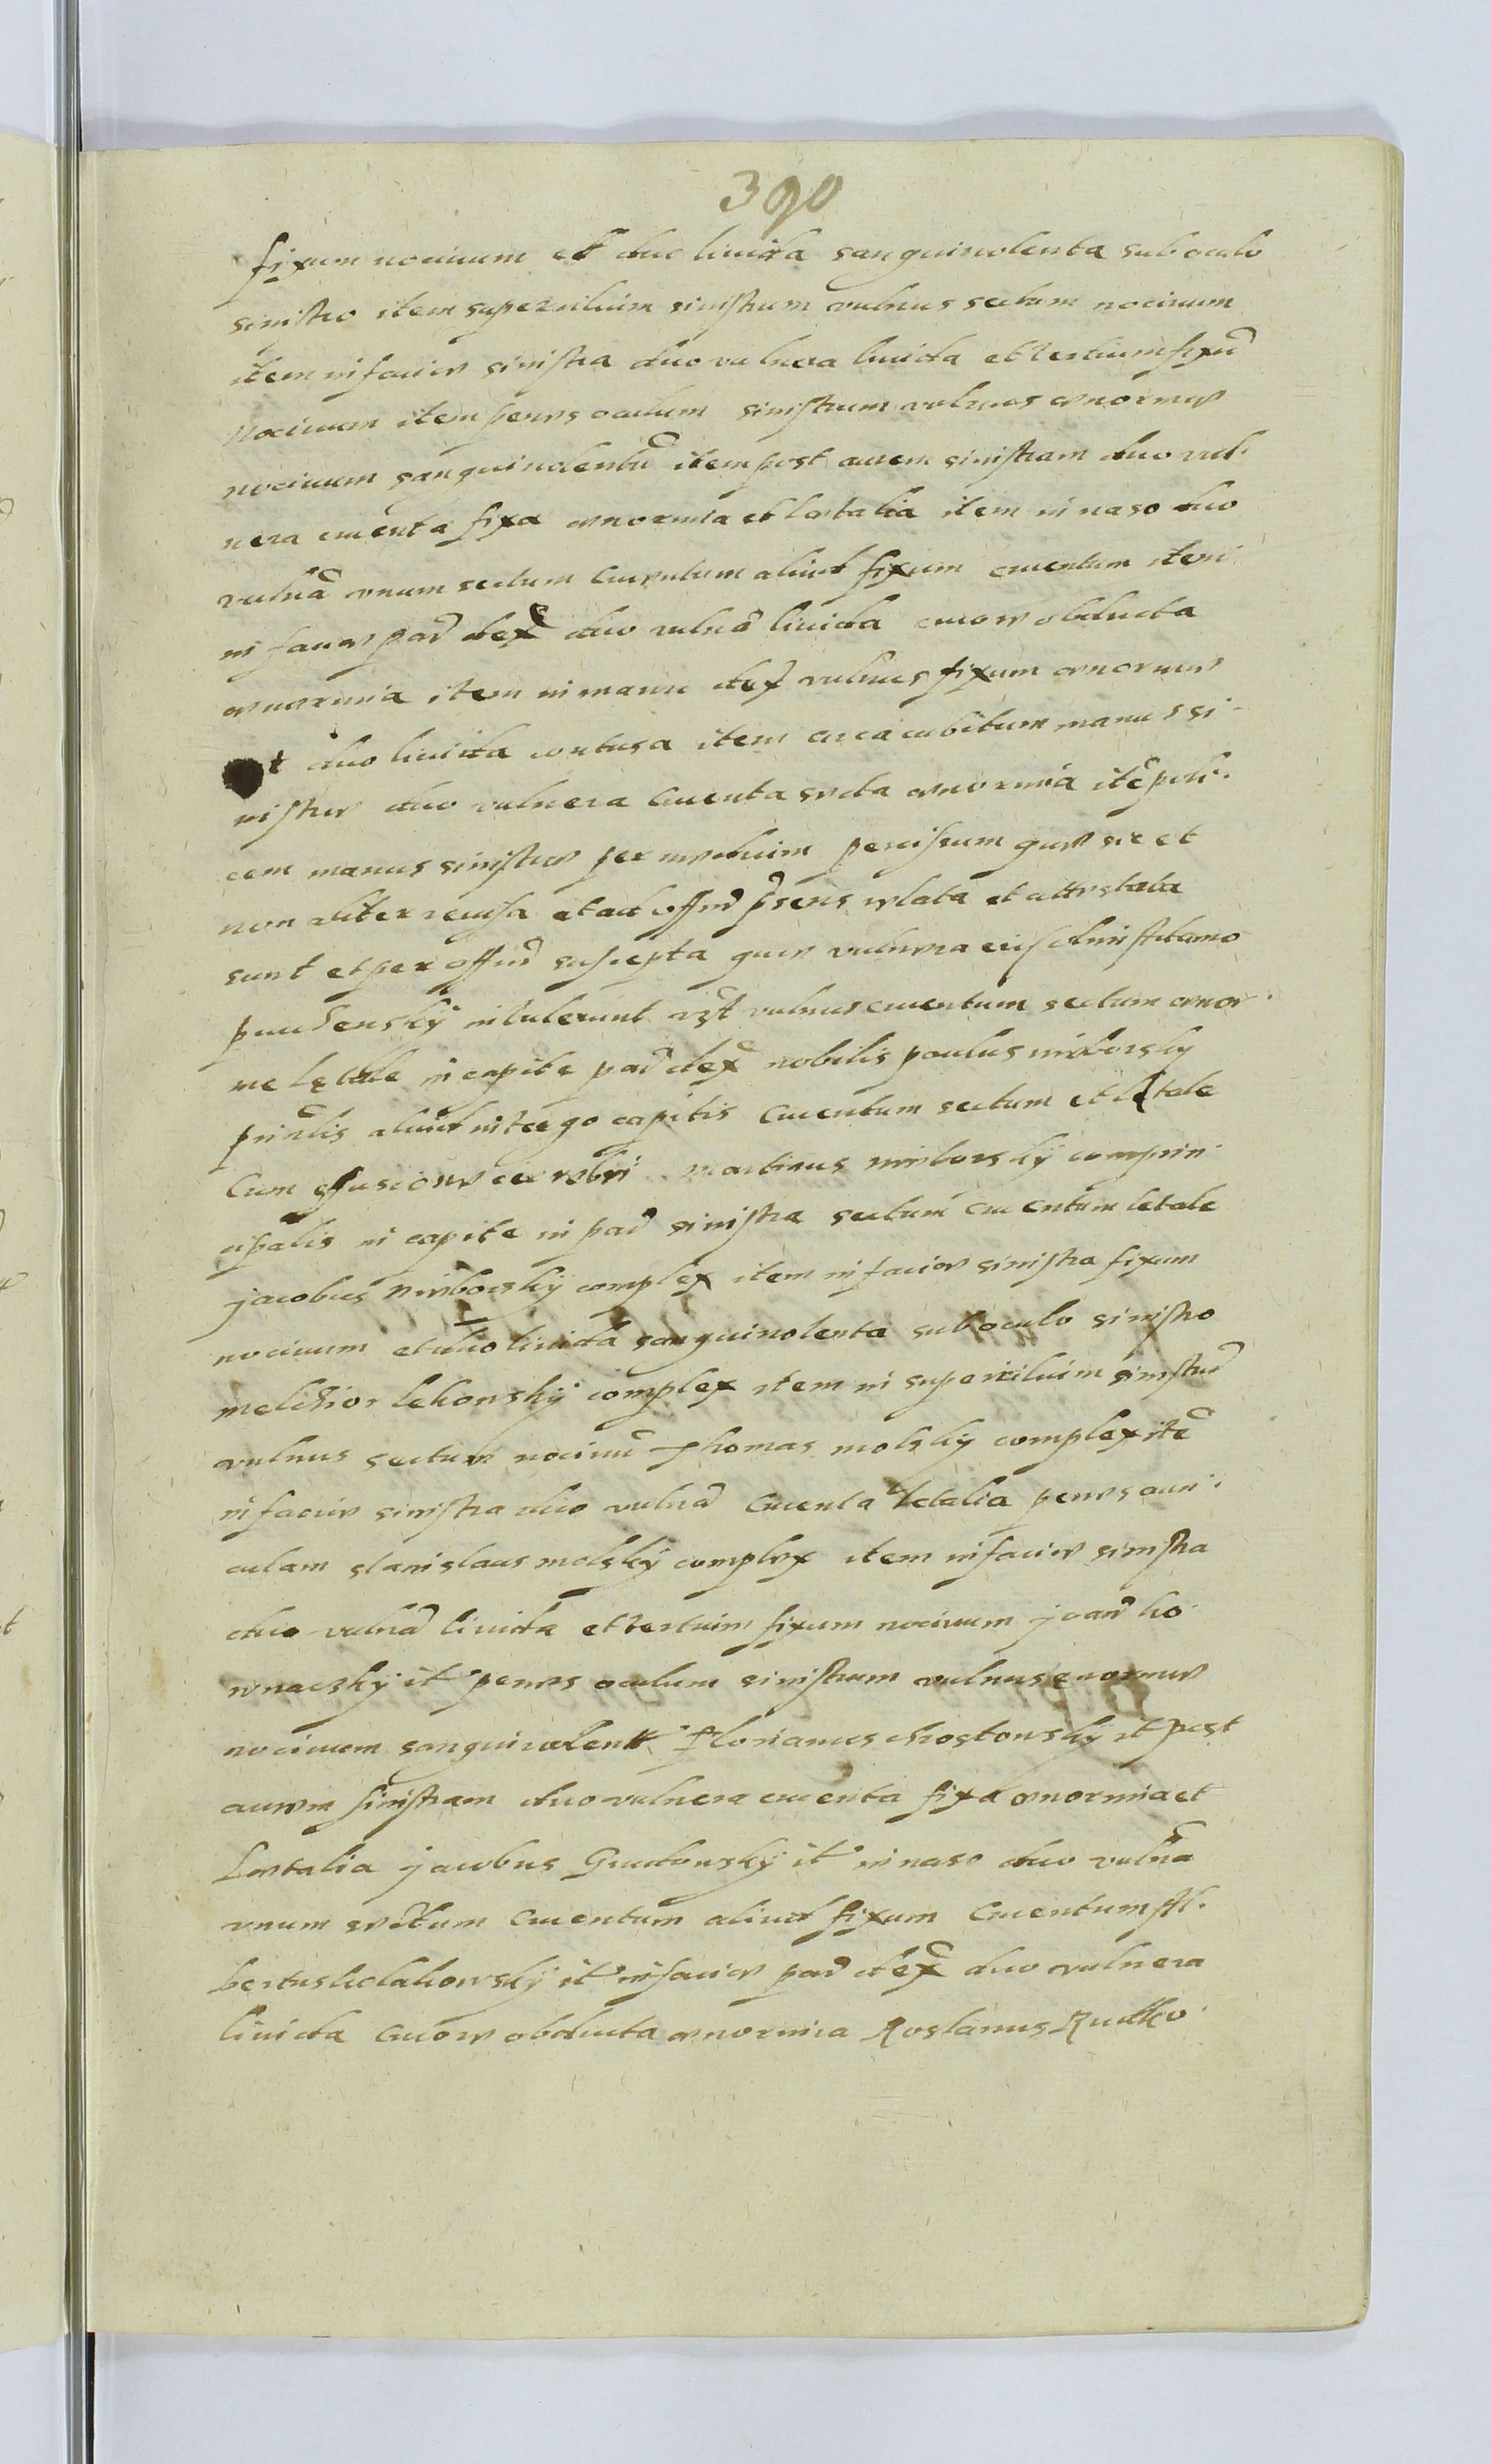 390
fixum nociuum et duo liuida sanguinolenta sub oculo
sinistro item supercilium sinistrum vulnus sectum nociuum
item in facie sinistra duo vulnera liuida et tertium fixũ
nociuum item penes oculum sinistrum vulnus enorme
nociuum sanguinolentũ item post aurem sinistram duo vul-
nera cruenta fixa enormia et letalia item in naso duo
vulnã vnum sectum cruentum aliud fixum cruentum item
in facie par̃ dex̃ duo vulnã liuida cruore obducta
enormia item in manu dex vulnus fixum enorme
et duo liuida contusa item circa cubitum manus si-
nistre duo vulnera cruenta secta enormia itẽ poli-
cem manus sinistre per medium percisum que sic et
non aliter reuisa et ad offm̃ p̃sens relata et attestata
sunt et per offm̃ suscepta que vulnera eisdem
intulerunt vz̃t vulnus cruentum sectum enor-
me letale in capite par̃ dex̃ nobilis paulus
prin̄lis aliud in tergo capitis cruentum sectum et letale
cum effusione cerebri martinus comprin-
cipalis in capite in par̃ sinistra sectum cruentum letale
jacobus complex item in facie sinistra fixum
nociuum et duo liuida sanguinolenta sub oculo sinistro
melchior lekowskÿ complex item in supercilium sinistrũ
vulnus sectum nociuũ Thomas molskÿ complex itẽ
in facie sinistra duo vulnã cruenta letalia penes auri-
culam stanislaus molskÿ complex item in facie sinistra
duo vulnã liuida et tertium fixum nociuum joañ ko-
wnackÿ it penes oculum sinistrum vulnus enorme
nociuum sanguinolent Florianus chrostowskÿ it post
aurem sinistram duo vulnera cruenta fixa enormia et
Letalia jacobus Grudowskÿ it in naso duo vulña
vnum sectum cruentum aliud fixum cruentum Al-
bertus it in facie par̃ dex̃ duo vulnera
liuida cruore obducta enormia Roslanus Rudko